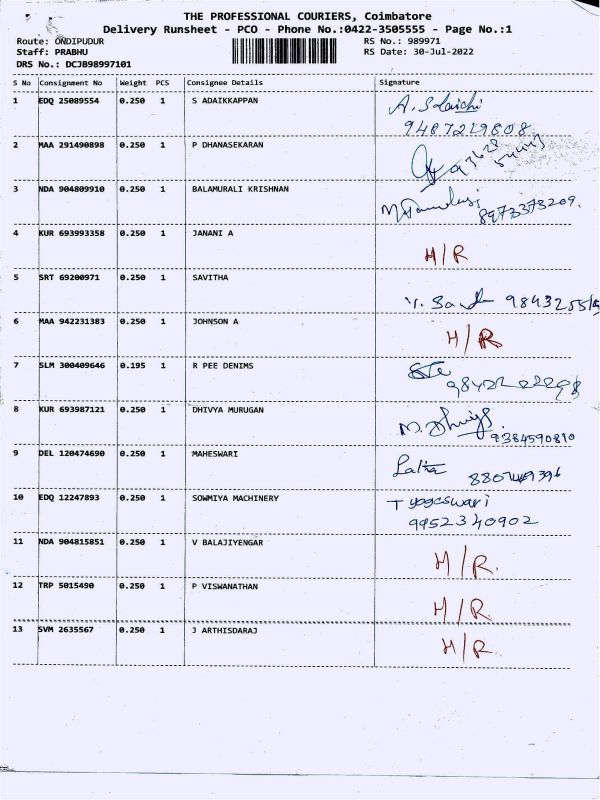 THE PROFESSIONAL COURIERS, Coimbatore
Delivery Runsheet - PCO - Phone No.:0422-3505555 - Page No.:1
Route: ONDIPUDUR RS No.: 989971
Staff: PRABHU RS Date: 30-Jul-2022
DRS No.: DCJB98997101
S No Consignment No Weight PCS Consignee Details Signature
1 EDQ 25089554 0.250 1 S ADAIKKAPPAN
9487229808
2 MAA 291490898 0.250 1 P DHANASEKARAN
3 NDA 904809910 0.250 1 BALAMURALI KRISHNAN 8973373209.
4 KUR 693993358 0.250 1 JANANI A H/R
5 SRT 69200971 0.250 1 SAVITHA
6 MAA 942231383 0.250 1 JOHNSON A H/R
7 SLM 300409646 0.195 1 R PEE DENIMS
8 KUR 693987121 0.250 1 DHIVYA MURUGAN 9384590810
9 DEL 120474690 0.250 1 MAHESWARI Latha
10 EDQ 12247893 0.250 1 SOWMIYA MACHINERY T yogeswari
9952340902
11 NDA 904815851 0.250 1 V BALAJIYENGAR H/R.
12 TRP 5015490 0.250 1 P VISWANATHAN H/R.
13 SVM 2635567 0.250 1 J ARTHISDARAJ H/R